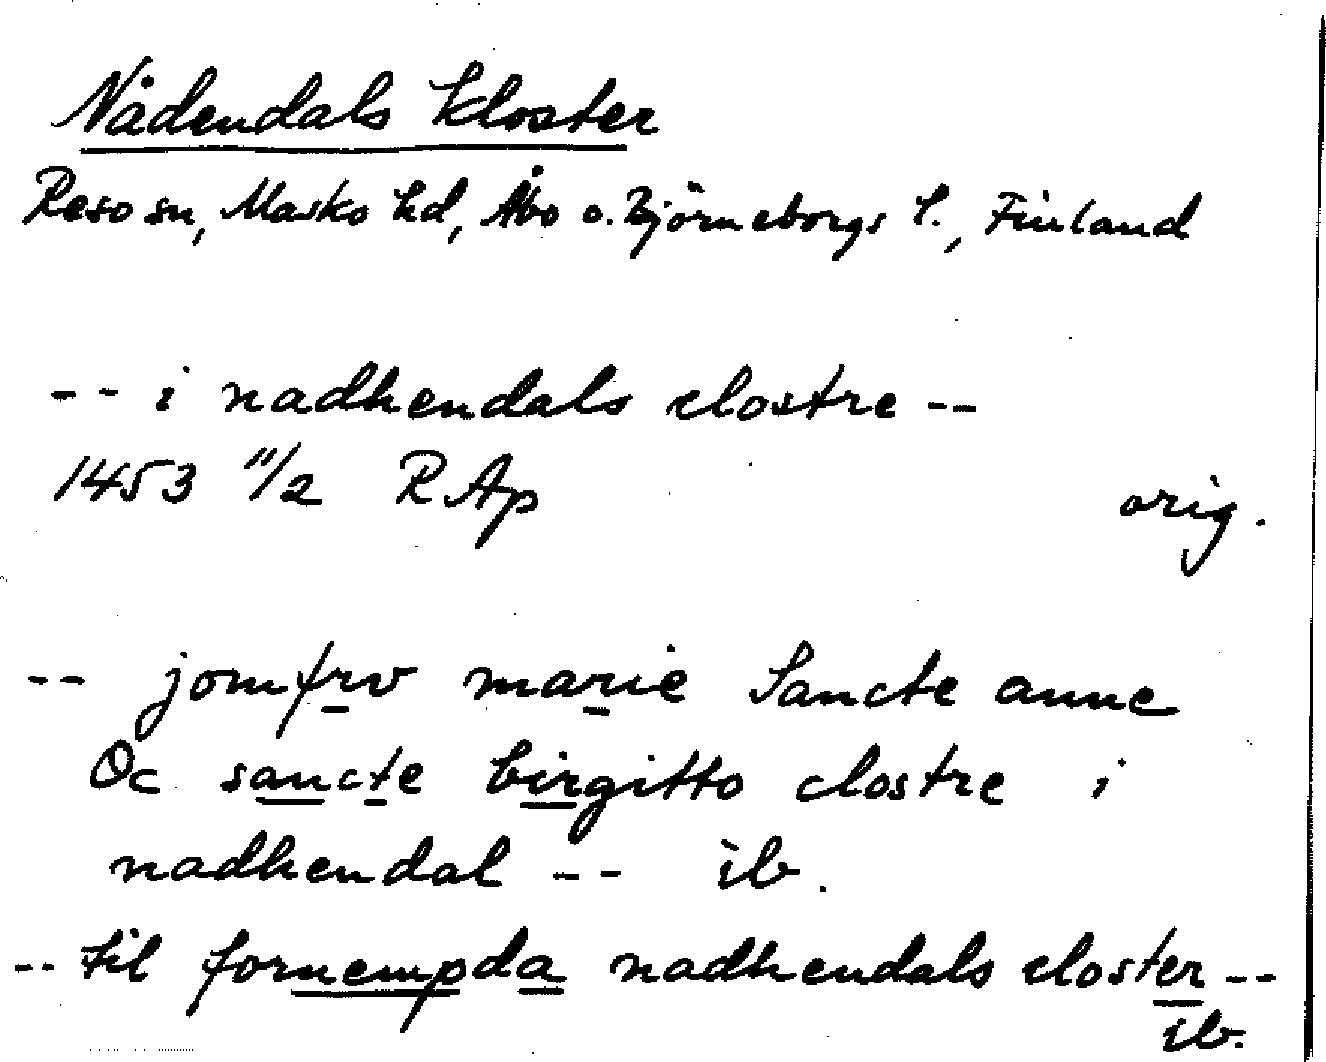 Nådendals kloster
Reso sn, Masko hd, Åbo o. Björneborgs l., Finland
-- i nadhendals clostre --
1453 11/2 RAp orig.
-- jomfrv marie Sancte anne
Oc sancte birgitto clostre i
nadhendal -- ib.
-- til fornempda nadhendals closter --
ib.